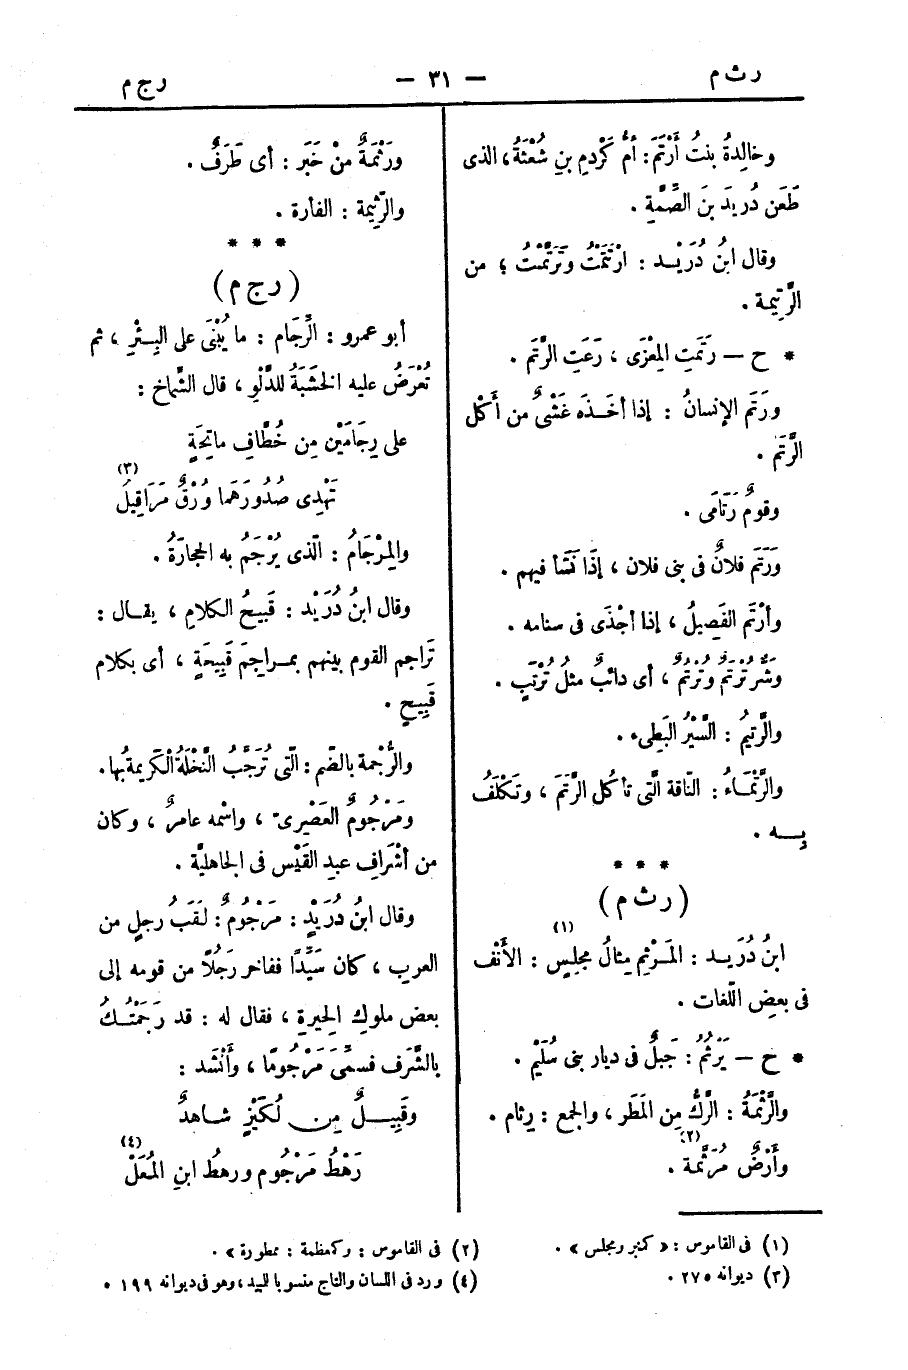 رثم
— ٣١ —
رجم
وخالِدةُ بنتُ أَرْتَمَ : أمُّ كَرْدمِ بنِ شُعْثَةُ ، الذى
طَعَن دُريدَ بنَ الصِّمَّةِ .
وقال ابنُ دُرَيْــد : ارْتَتَمْتُ وتَرَتَّمْتُ ؛ من
الرَّتِيمة .
* ح — رَتَمَتِ المِعْزَى ، رَعَتِ الرَّتَم .
ورَتَم الإنسانُ : إذا أخَــذَه غَشْىٌ من أَكْل
الرَّتَم .
وقومٌ رَتَامَى .
ورَتَم فلانٌ فى بنى فلان ، إذَا نَشَأ فيهم .
وأرْتَم الفَصِيلُ ، إذا أجْذَى فى سنامه .
وشَرٌّ تُرْتَمٌ وتُرْتُمٌ ، أى دائبٌ مثلُ تُرْتَبٍ .
والرَّتِيمُ : السَّيْرُ البَطِىء .
والرَّتْمَـاءُ : النّاقة الَّتى تأكل الرَّتَمَ ، وتَـكْلَفُ
بِــه .
* * *
(رثم)
ابنُ دُرَيـد : المَـرْثِم مِثالُ مَجْلِسٍ (١) : الأَنْف
فى بعضِ اللّغات .
* ح — يَرْثُمُ : جَبلٌ فى ديار بنى سُلَيْم .
والرَّثْمَـةُ : الرِّكُّ مِن المَطَر ، والجمع : رِثام .
وأَرْضٌ مُرَثَّمة (٢) .
ورَثْمَةٌ مِنْ خَبَر : أى طَرَفٌ .
والرَّثِيمة : الفأرة .
* * *
(رجم)
أبو عمرو : الرِّجَام : ما يُبْنَى على البِـئْرِ ، ثم
تُعْرَضُ عليه الخشَبَةُ للدَّلْوِ ، قال الشَّماخ :
على رِجَامَيْن مِن خُطَّافِ ماتِحَةٍ
تَهْدِى صُدُورَهَما وُرْقٌ مَرَاقِيلُ (٣)
والمِرْجَامُ : الّذى يُرْجَمُ به الحِجارَةُ .
وقال ابنُ دُرَيْد : قَبِيحُ الكلامِ ، يقـال :
تَراجم القوم بينهم بمـراجِمَ قَبِيحَةٍ ، أى بكلام
قَبِيحٍ .
والرُّجْمة بالضّم : الّتى تُرَجَّبُ النَّخْلَةُ الْكَريمةُ بها .
ومَرْجُومٌ العَصَرِىّ ، واسْمُه عامرٌ ، وكان
من أشْرَافِ عبدِ القَيْس فى الجاهليَّة .
وقال ابنُ دُرَيْدٍ : مَرْجُومٌ : لَقَبُ رجلٍ من
العرب ، كان سَيِّدًا ففاخر رَجُلًا من قومه إلى
بعض ملوكِ الحِيرةِ ، فقال له : قد رَجَمْتُـكَ
بالشَّرَف فسمِّىَ مَرْجُومًا ، وأَنْشَد :
وقَبِيــلٌ مِن لُكَيْزٍ شاهدٌ
رَهْطُ مَرْجُوم ورهطُ ابنِ المُعَلّْ (٤)
(١) فى القاموس : « كمنبر ومجلس » .
(٢) فى القاموس : وكمعظمة : ممطورة » .
(٣) ديوانه ٢٧٥ .
(٤) ورد فى اللسان والتاج منسوبا للبيد ، وهو فى ديوانه ١٩٩ .